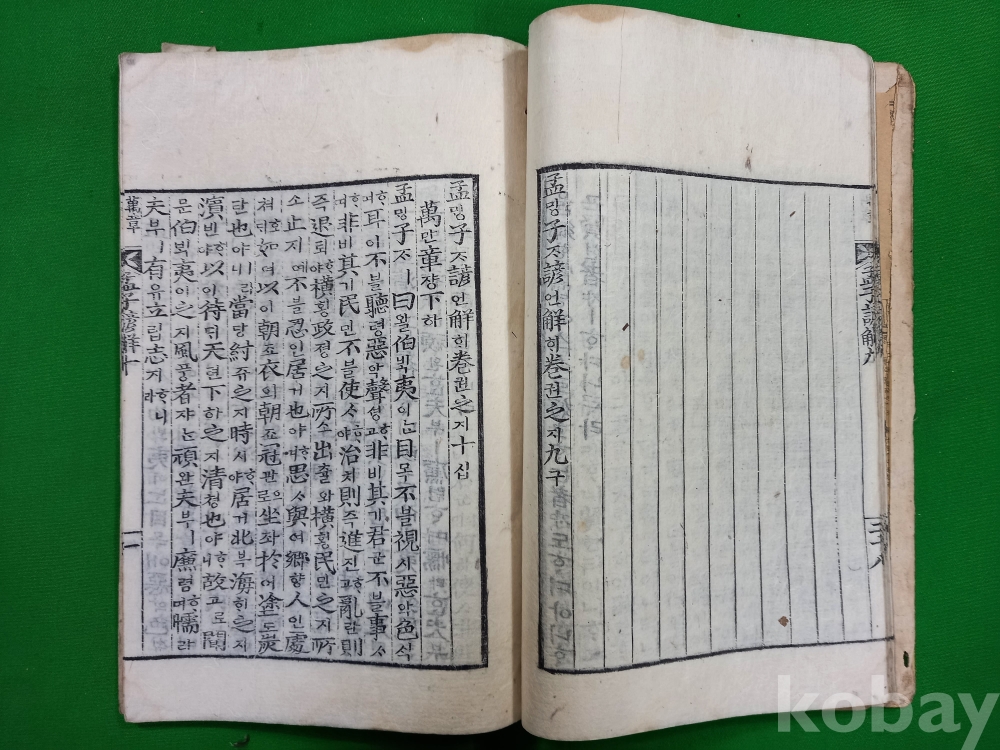 孟子諺解九
二十八
孟ᄆᆡᆼ子ᄌᆞ諺언解ᄒᆡ卷권之지九구
孟ᄆᆡᆼ子ᄌᆞ諺언解ᄒᆡ卷권之지十십
萬만章쟝下하
孟ᄆᆡᆼ子ᄌᆞㅣ曰왈伯ᄇᆡᆨ夷이ᄂᆞᆫ目목不블視시惡악色ᄉᆡᆨ
ᄒᆞ며耳이不블聽령惡악聲셩ᄒᆞ고非비其기君군不블事ᄉᆞ
ᄒᆞ며非비其기民민不블使ᄉᆞᄒᆞ야治치則즉進진ᄒᆞ고亂란則
즉退퇴ᄒᆞ야橫횡政졍之지所소出츌와橫횡民민之지所
소止지예不블忍인居거也야ᄒᆞ며思ᄉᆞ與여鄕향人인處
쳐호ᄃᆡ如여以이朝죠衣의朝죠冠관으로坐좌於어塗도炭
탄也야ㅣ러니當당紂쥬之지時시ᄒᆞ야居거北북海ᄒᆡ之지
濱빈ᄒᆞ야以이待ᄃᆡ天텬下하之지淸쳥也야ᄒᆞ니故고로聞
문伯ᄇᆡᆨ夷이之지風풍者쟈ᄂᆞᆫ頑완夫부ㅣ廉렴ᄒᆞ며懦라
夫부ㅣ有유立립志지ᄒᆞ니라
萬章
孟子諺解十
一
kobay